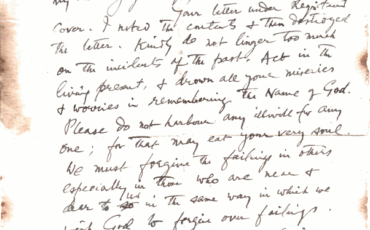 my
Your letter under registered
cover. I noted the contents & then destroyed
the letter. Kindly do not linger too much
on the incidents of the past. Act in the
living present, & drown all your miseries
& worries in remembering the Name of God.
Please do not harbour any illwill for any
one; for that may eat your very soul.
We must forgive the failings in others
especially in those who are near &
dear to us in the same way in which we
wish God to forgive our failings.